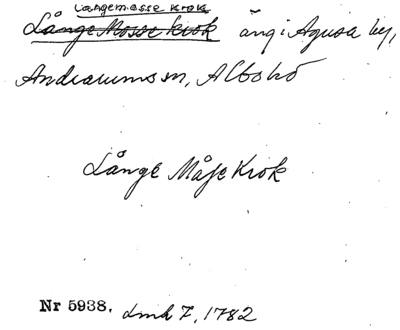 Långemosse krok
Långe Mosse krok äng i Agusa by,
Andrarums sn, Albo hd
Långe Måse Krok
Nr 5938. Lmh 7, 1782